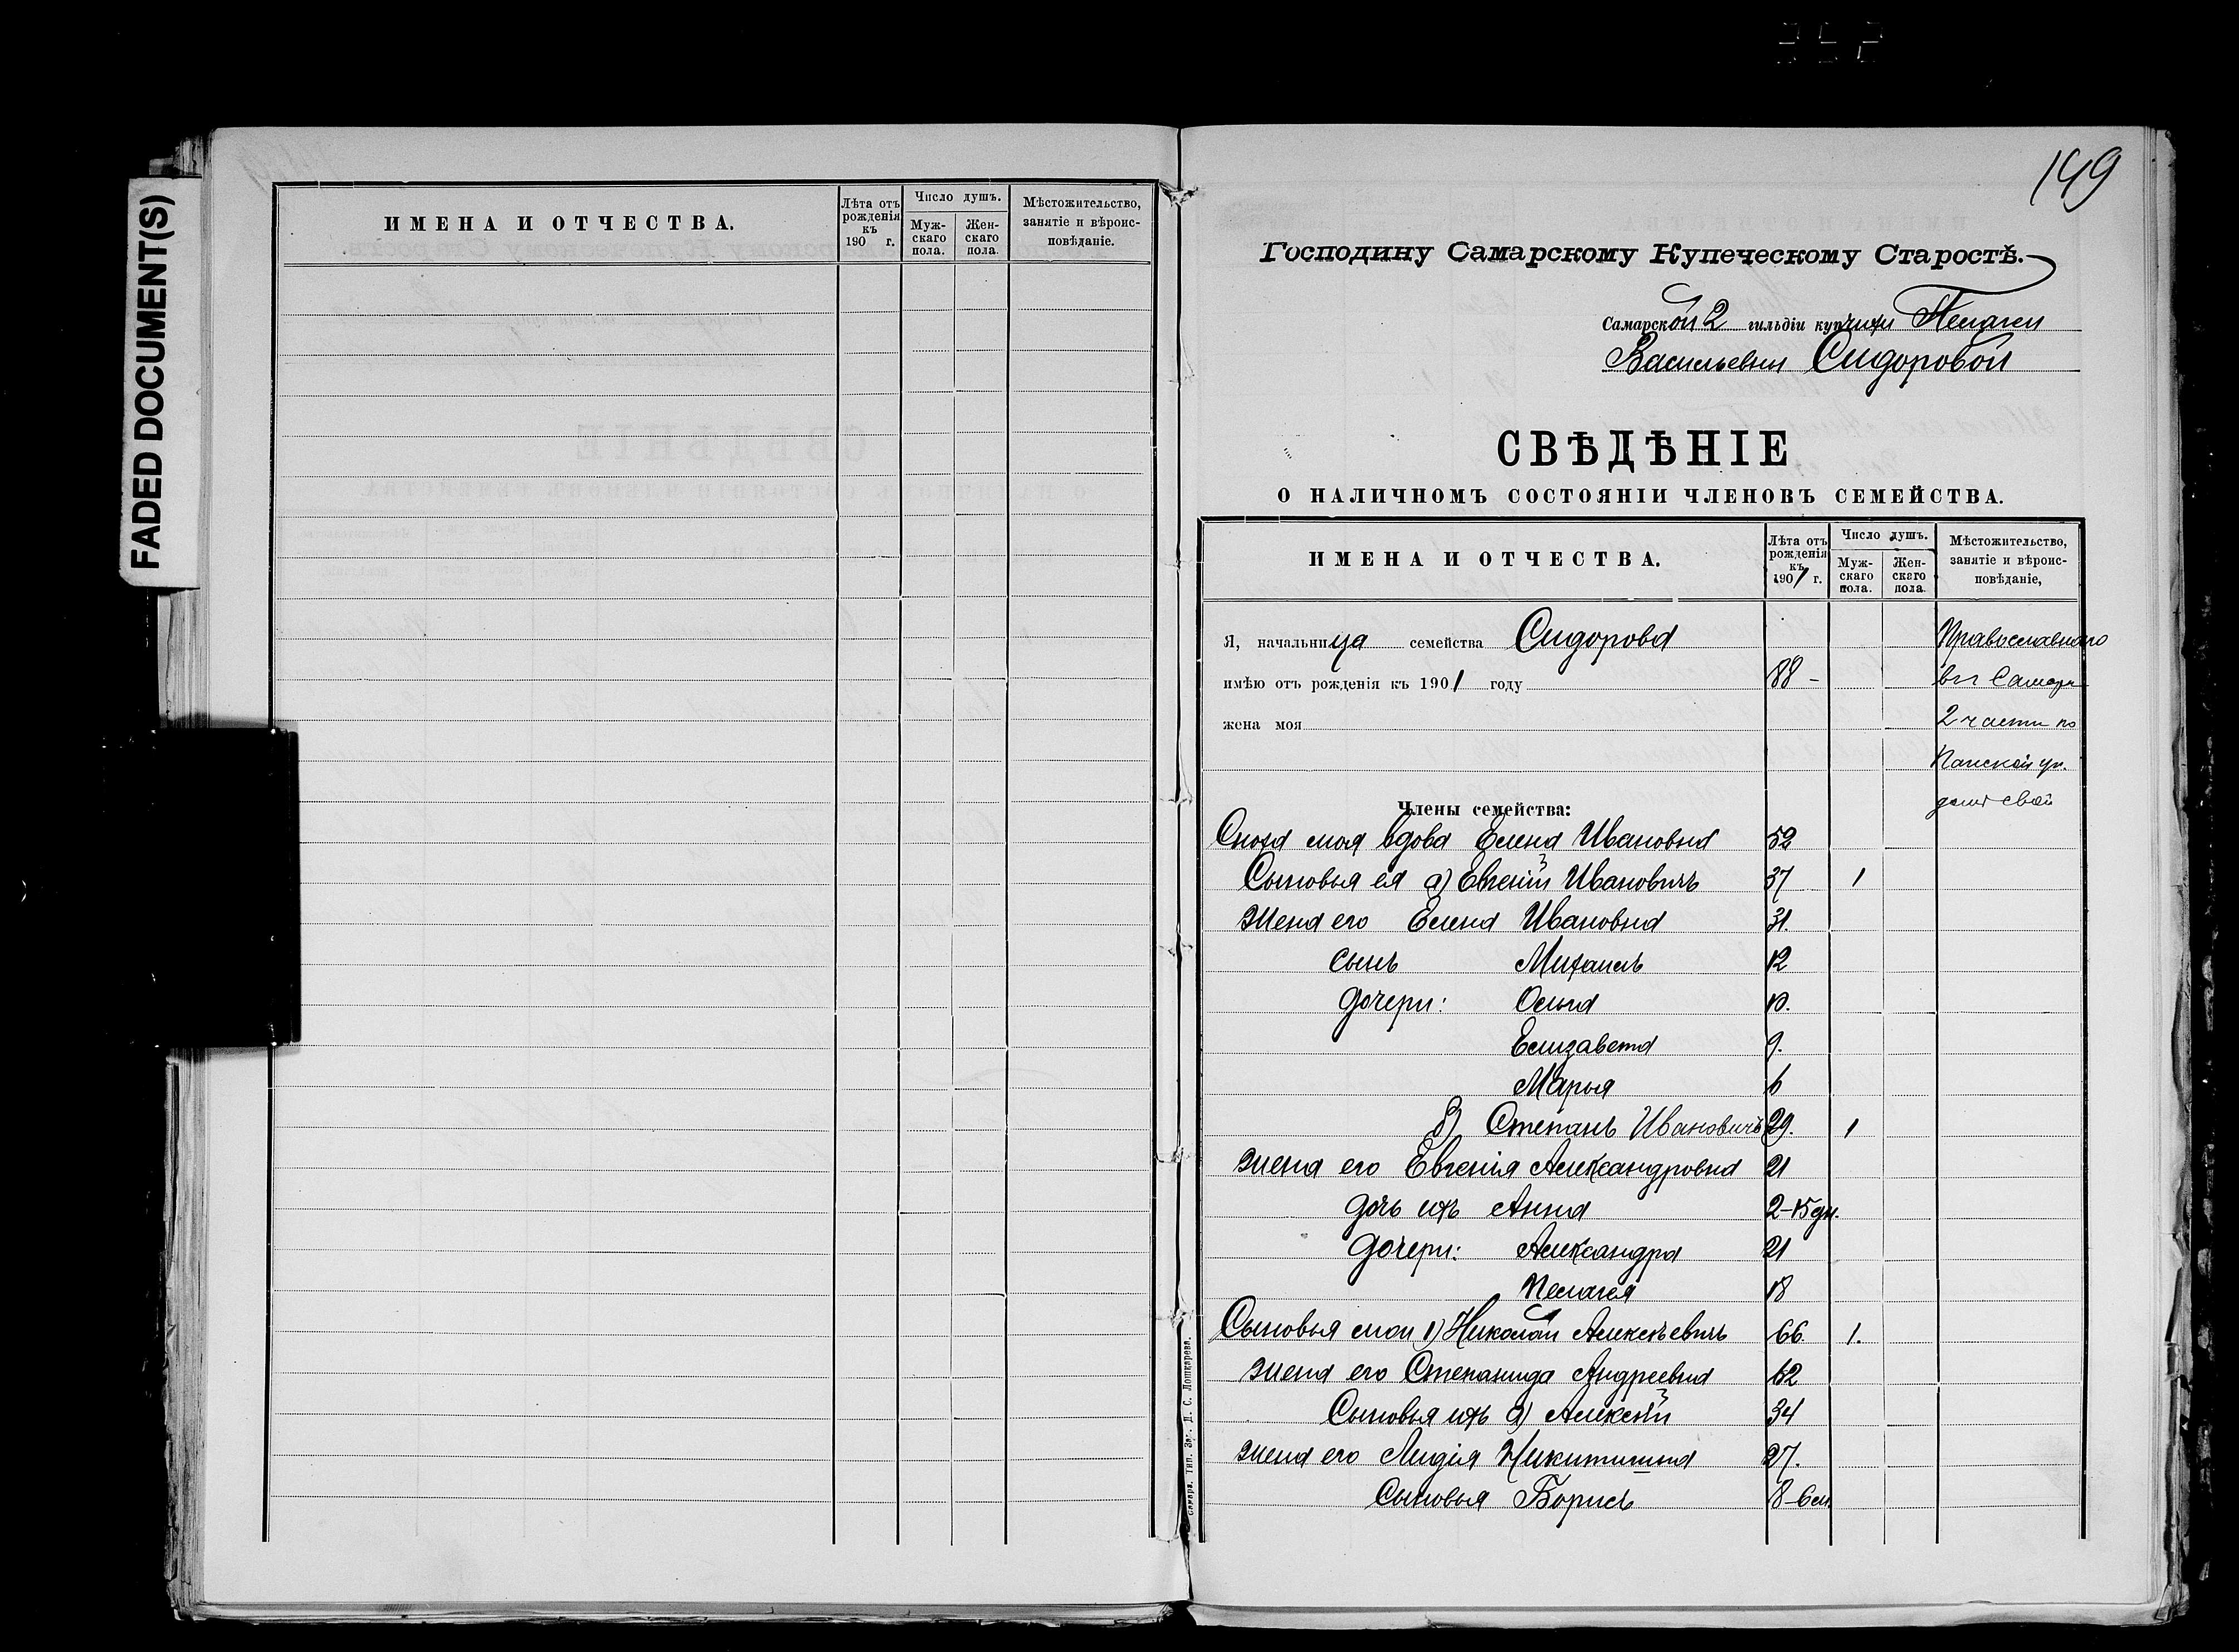 FADED DOCUMENT(S)
ИМЕНА И ОТЧЕСТВА.
Лѣта отъ рожденія къ 190 г.
Число душъ.
Мужскаго пола.
Женскаго пола.
Мѣстожительство, занятіе и вѣроисповѣданіе.
149
Господину Самарскому Купеческому Старостѣ.
Самарской 2 гильдіи купчихи Пелагеи
Васильевны Сидоровой
СВѢДѢНІЕ
О НАЛИЧНОМЪ СОСТОЯНІИ ЧЛЕНОВЪ СЕМЕЙСТВА.
ИМЕНА И ОТЧЕСТВА.
Лѣта отъ рожденія къ 1901 г.
Число душъ.
Мужскаго пола.
Женскаго пола.
Мѣстожительство, занятіе и вѣроисповѣданіе,
Я, начальница семейства Сидорова Православнаго
имѣю отъ рожденія къ 1901 году 88 – въ г Самарѣ
жена моя 2 части по
Панской ул.
домъ свой
Члены семейства:
Сноха моя вдова Елена Ивановна 52
Сыновья ея а) Евгеній Ивановичъ 37 1
Жена его Елена Ивановна 31.
сынъ Михаилъ 12
дочери: Ольга 10.
Елизавета 9.
Марья 6
в) Степанъ Ивановичъ 29. 1
Жена его Евгенія Александровна 21
дочь ихъ Анна 2–15 дн.
дочери: Александра 21
Пелагея 18
Сыновья мои 1) Николай Алексѣевичъ 66. 1.
Жена его Степанида Андреевна 62
Сыновья ихъ а) Алексѣй 34
Жена его Лидія Никитишна 27.
Сыновья Борисъ 8–6 м.
Самара. Тип. Зар. Д. С. Лошкарева.